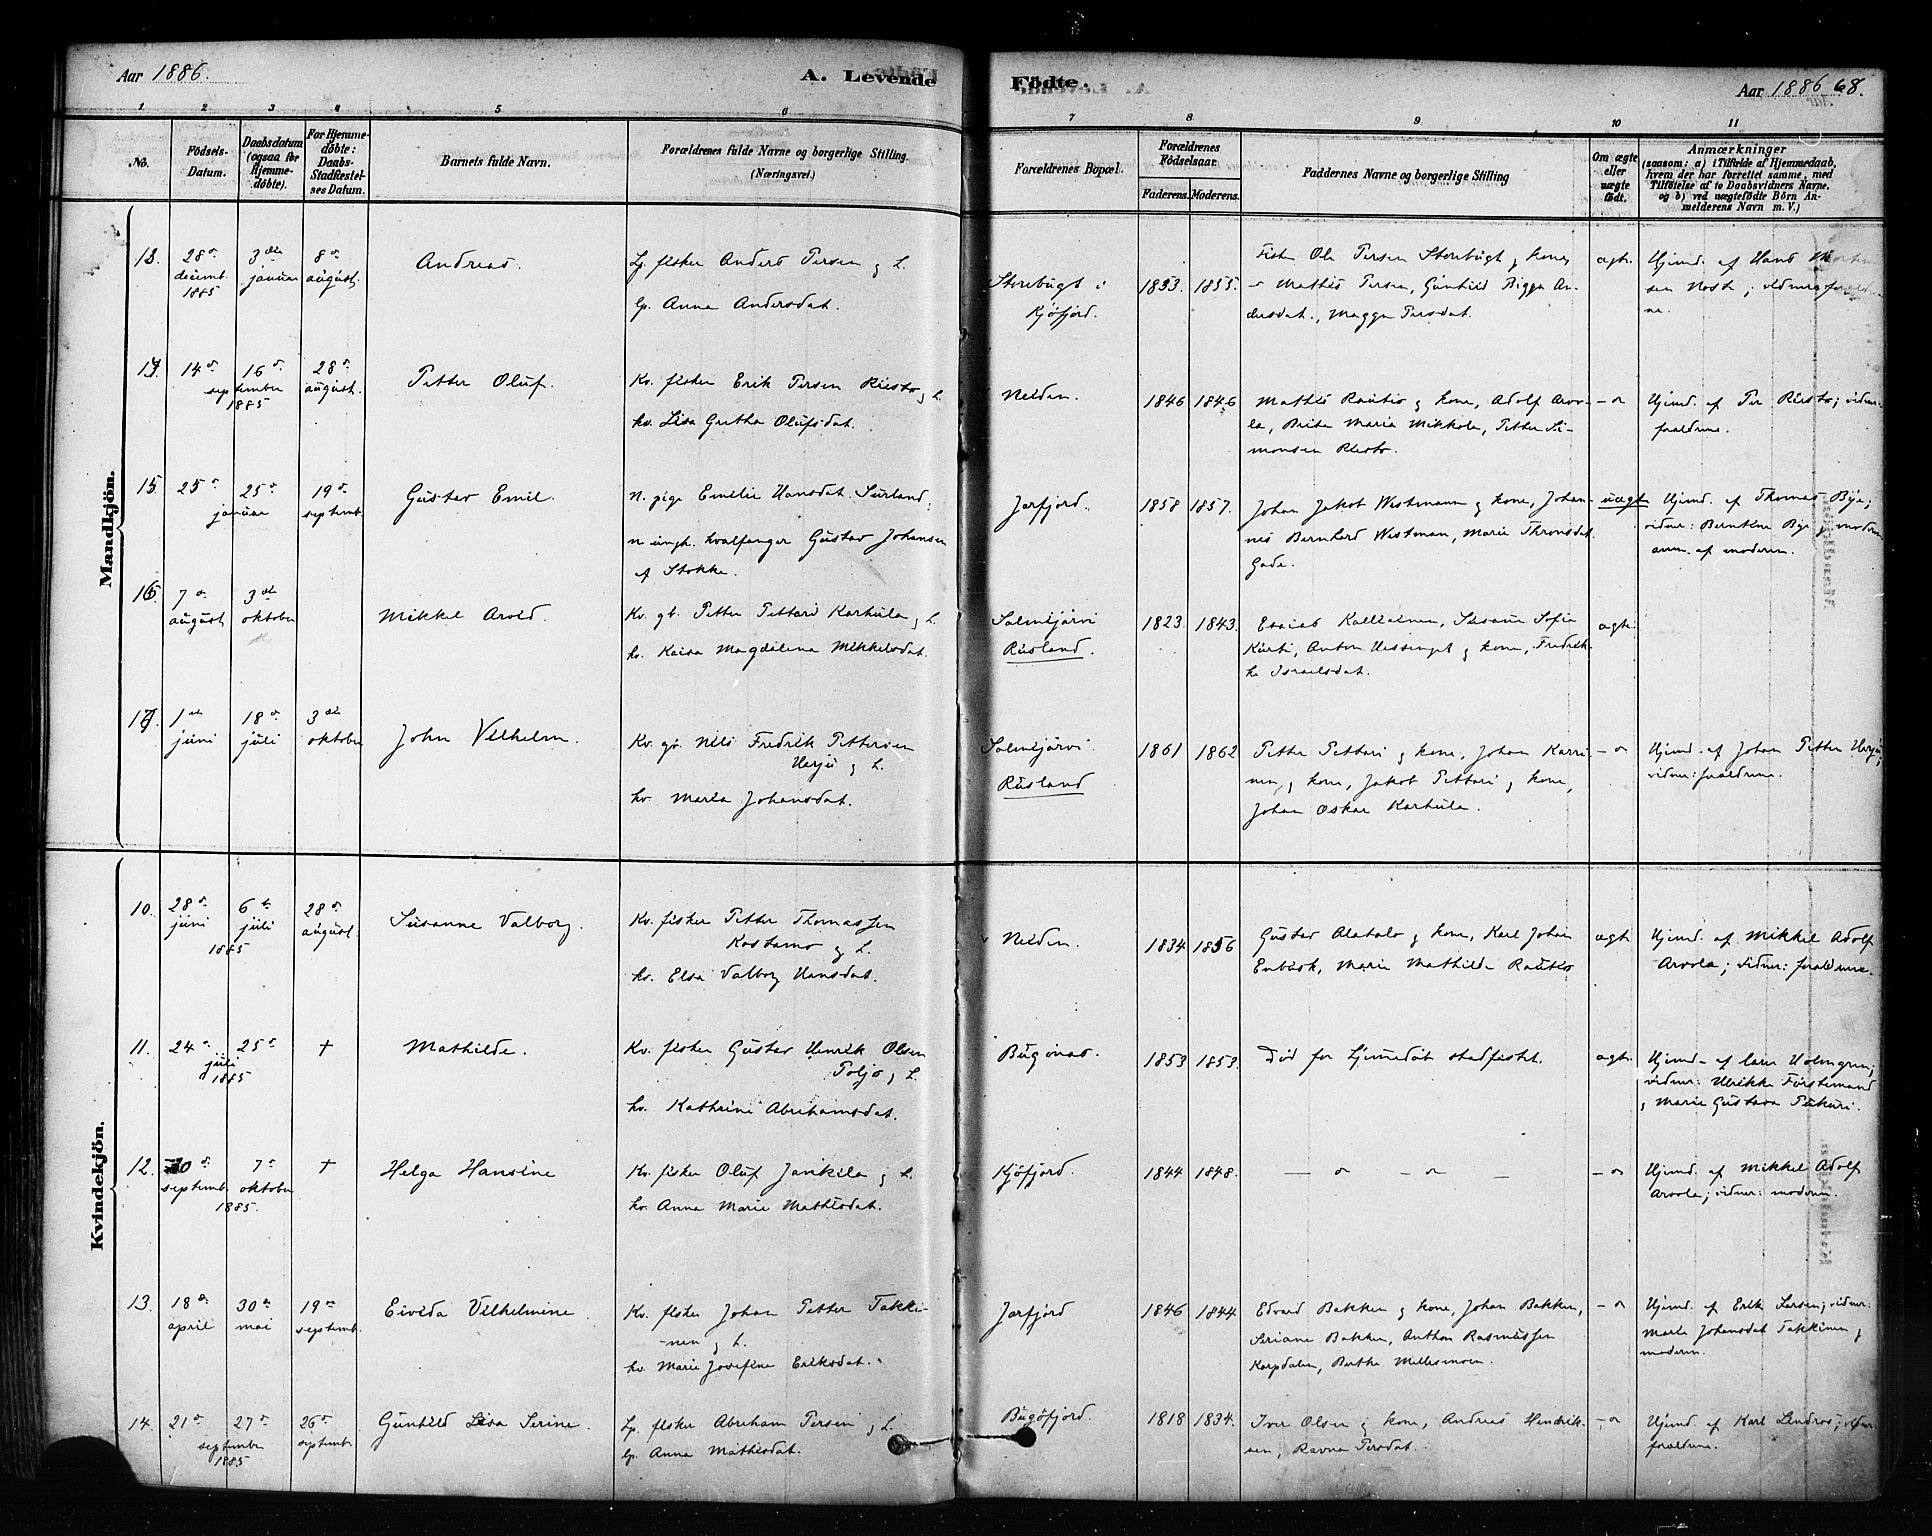 Aar 1886.
A. Levende
Födte.
Aar 1886 68.
1 2 3 4 5 6 7 8 9 10 11
No.
Födsels-
Datum.
Daabsdatum
(ogsaa for
Hjemme-
döbte).
For Hjemme-
döbte:
Daabs-
Stadfæstel-
ses Datum.
Barnets fulde Navn.
Forældrenes fulde Navne og borgerlige Stilling.
(Næringsvei.)
Forældrenes Bopæl.
Forældrenes
Födselsaar.
Faderens. Moderens.
Faddernes Navne og borgerlige Stilling
Om ægte
eller
uægte
födt.
Anmærkninger
(saasom: a) i Tilfælde af Hjemmedaab,
hvem der har forrettet samme, med
Tilföielse af to Daabsvidners Navne.
og b) ved uægtefödte Börn An-
melderens Navn m. V.)
Mandkjön.
13. 28 decemb. 1885
3 januar
8 august
Andreas.
Lp. fisker Anders Persen g L.
lp. Anna Andersdat.
Storebugt i
Kjöfjord.
1853 1855.
Fisker Ole Persen Storebugt g kone,
Mathis Persen, Gunhild Bigga An-
dersdat., Magga Persdat.
ægte
Hjemd. af Hans
14. 14 16 september 1885
28 august.
Petter Oluf.
Kv. fisker Erik Persen Riesto g L.
kv. Lisa Gretha Olufsdat.
Neiden.
1846 1846
Mathis Rautio g kone, Adolf Arvo-
la, Brita Maria Mikkola, Petter Si-
monsen Riesto.
Hjemd. af Per Riesto; vidner:
forældrene.
15. 25 25 januar
19 septemb.
Gustav Emil.
n. pige Emilie Hansdat.
n. ungk. hvalfanger Gustav Johansen
af Stokke.
Jarfjord.
1858 1857.
Johan Jakob Westmann g kone, Johan-
nes Bernhard Westman, Marie Thronsdat.
Gade.
uægte
Hjemd. af Thomas Bye;
vidner: Berntine Bye g moderen
anm. af moderen.
16. 7 august
3 oktober
Mikkel Arvid.
Kv. gb. Petter Pettari Karhula g L.
kv. Kaisa Magdalena Mikkelsdat.
Salmijärvi
Rusland.
1823. 1843.
Esaias Kalliainen, Susanne Sofie
Kurti, Anton g kone, Fredrik-
ke Israelsdat.
ægte
17. 1 juni
18 juli
3 oktober
John Vilhelm.
Kv. gb. Nils Fredrik Pettersen
Harju g L.
kv. Maria Johansdat.
Salmijärvi.
Rusland
1861 1862
Petter Pettari g kone, Johan Karri-
nen g kone, Jakob Pettari g kone,
Johan Oskar Karhula.
Hjemd. af Johan Petter Harju;
vidner: forældrene.
Kvindekjön.
10. 28 juni
6 juli 1885
28 august.
Susanne Valborg.
Kv. fisker Petter Thomassen
Kostamo g L.
kv. Elsa Valborg Hansdat.
Neiden.
1834 1856
Gustav Alatalo g kone, Karl Johan
Enbusk, Marie Mathilde Rautio
ægte
Hjemd. af Mikkel Adolf
Arvola; vidner: forældrene.
11. 24 25 juli 1885
†
Mathilde.
Kv. fisker Gustav Henrik Olsen
Poljo g L.
kv. Kathrine Abrahamsdat.
Bugönas.
1853 1853.
Död for hjemmedöbt stadfæstet.
ægte
Hjemd. af Lars Holmgren;
vidner: Ulrikke Förstemand
g Marie Gustava Pukuri.
12. 30 septemb.
7 oktober 1885.
†
Helga Hansine
Kv. fisker Oluf Jankila g L.
kv. Anna Marie Mathisdat.
Kjöfjord.
1844 1848.
Hjemd. af Mikkel Adolf
Arvola; vidner: moderen.
13. 18 april
30 mai
19 septemb.
Eivida Vilhelmine
Kv. fisker Johan Petter Takki-
nen g L.
kv. Marie Josefine Eriksdat.
Jarfjord
1846 1844
Edvard Bakken g kone, Johan Bakken,
Seriane Bakken, Anthon Rasmussen
Karpdalen, Berthe Millesmoen.
Hjemd. af Erik Larsen; vidner:
Marie Johansdat Takkinen g
moderen.
14. 21 27 september 1885
26 septemb.
Gunhild Lisa Serine.
Lp. fisker Abraham Persen g L.
lp. Anna Mathisdat.
Bugöfjord.
1818 1834.
Iver Olsen g kone, Andreas Hendrik-
sen, Ravna Persdat.
Hjemd. af Karl Lindros; vidner
forældrene.